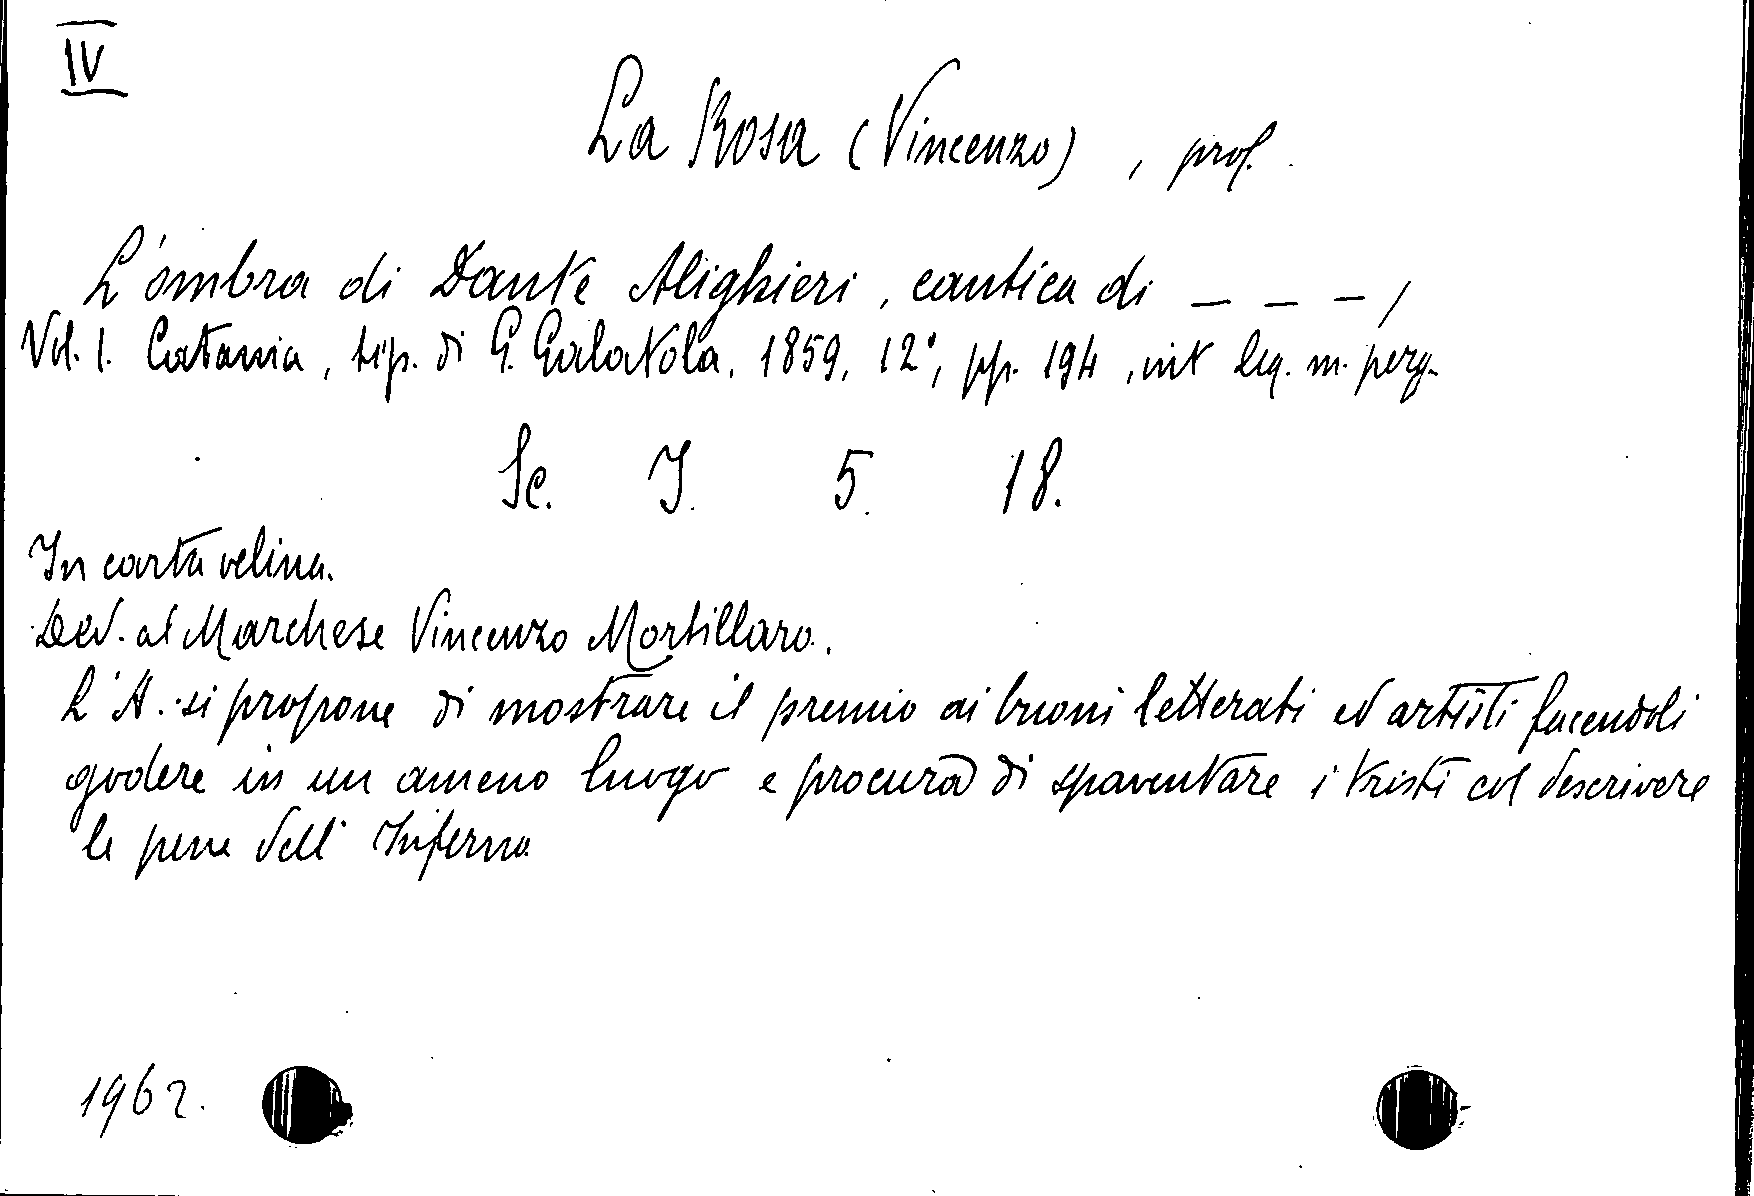 IV
La Rosa (Vincenzo), prof.
L'ombra di Dante Alighieri, cantica di _ _ _,
Vol. I. Catania, tip. di G. Galatola. 1859, 12°, pp. 194, int leg. m. perg.
Sc. I. 5. 18.
In carta velina.
Ded. al Marchese Vincenzo Mortillaro.
L'A. si propone di mostrare il premio ai buoni letterati ed artisti facendoli
godere in un ameno luogo e procura di spaventare i tristi col descrivere
le pene dell'Inferno
1962.